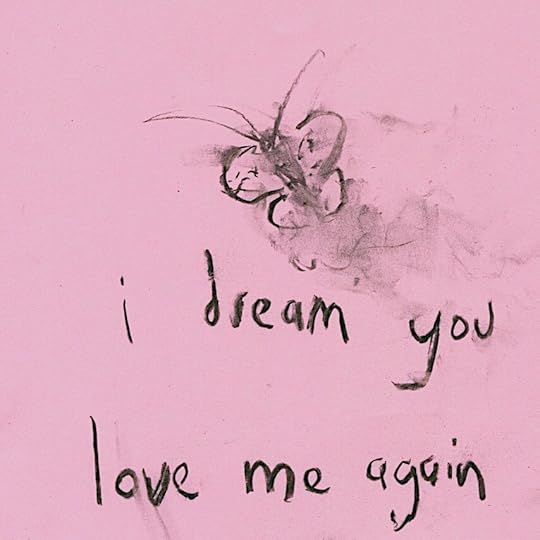 i dream you
love me again